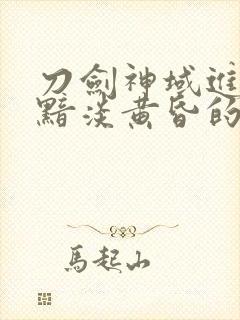 刀劍神域進
黯淡黃昏的
馬起山